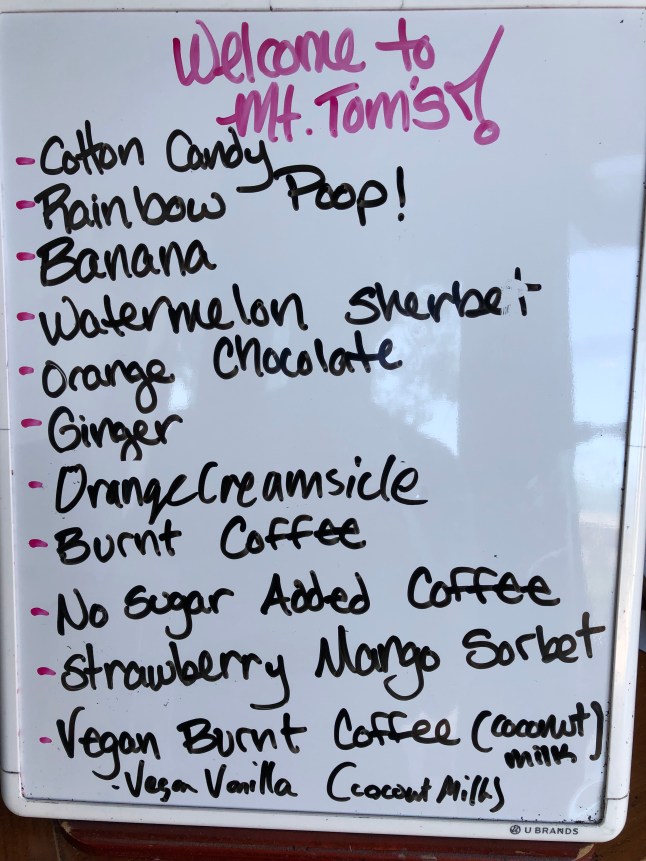 Welcome to
Mt. Tom's!
- Cotton Candy
- Rainbow Poop!
- Banana
- Watermelon Sherbet
- Orange Chocolate
- Ginger
- Orange Creamsicle
- Burnt Coffee
- No Sugar Added Coffee
- Strawberry Mango Sorbet
- Vegan Burnt Coffee (coconut
milk)
- Vegan Vanilla (coconut Milk)
U BRANDS